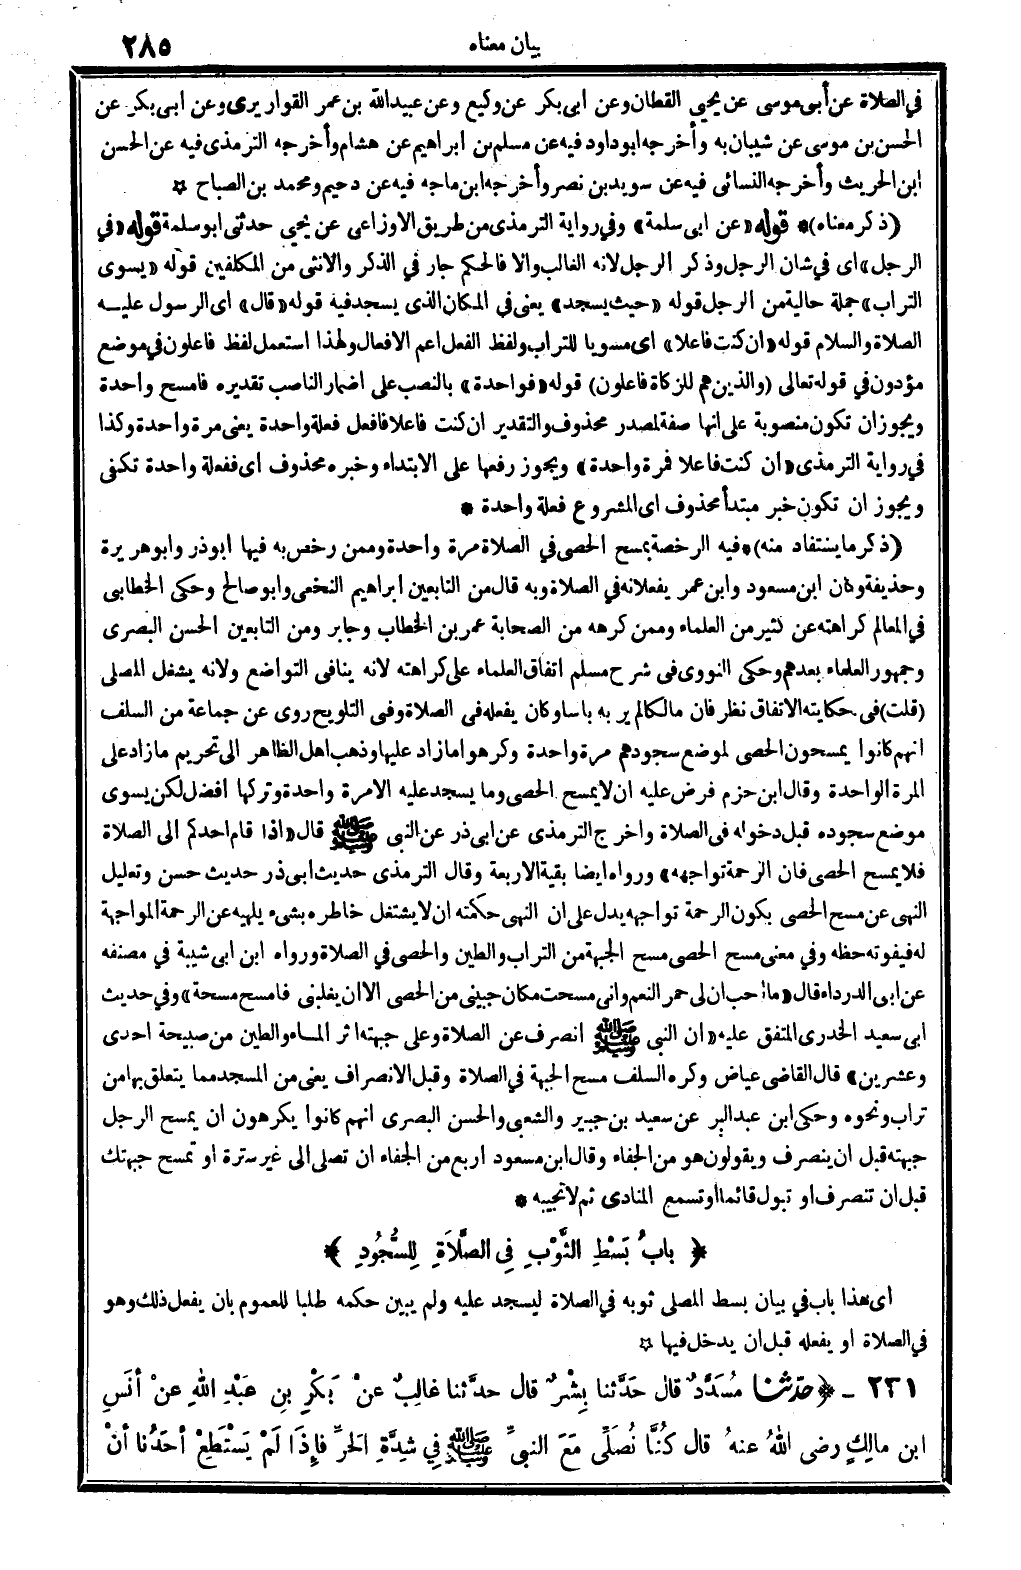 بيان معناه
٢٨٥
في الصلاة عن أبي موسى عن يحيى القطان وعن ابى بكر عن وكيع وعن عبيدالله بن عمر القواريرى وعن ابى بكر عن
الحسن بن موسى عن شيبان به وأخرجه ابوداود فيه عن مسلم بن ابراهيم عن هشام وأخرجه الترمذى فيه عن الحسن
ابن الحريث وأخرجه النسائى فيه عن سويد بن نصر وأخرجه ابن ماجه فيه عن دحيم ومحمد بن الصباح ☆
(ذكر معناه)* قوله «عن ابى سلمة» وفي رواية الترمذى من طريق الاوزاعى عن يحيى حدثنى ابو سلمة قوله «في
الرجل» اى في شان الرجل وذكر الرجل لانه الغالب والا فالحكم جار في الذكر والانثى من المكلفين قوله «يسوى
التراب» جملة حالية من الرجل قوله «حيث يسجد» يعنى في المكان الذى يسجد فيه قوله «قال» اى الرسول عليه
الصلاة والسلام قوله «ان كنت فاعلا» اى مسويا للتراب ولفظ الفعل اعم الافعال ولهذا استعمل لفظ فاعلون في موضع
مؤدون في قوله تعالى (والذين هم للزكاة فاعلون) قوله «فواحدة» بالنصب على اضمار الناصب تقديره فامسح واحدة
ويجوز ان تكون منصوبة على انها صفة لمصدر محذوف والتقدير ان كنت فاعلا فافعل فعلة واحدة يعنى مرة واحدة وكذا
في رواية الترمذى «ان كنت فاعلا فمرة واحدة» ويجوز رفعها على الابتداء وخبره محذوف اى ففعلة واحدة تكفى
ويجوز ان تكون خبر مبتدأ محذوف اى المشروع فعلة واحدة *
(ذكر ما يستفاد منه)* فيه الرخصة بمسح الحصى في الصلاة مرة واحدة وممن رخص به فيها ابوذر وابوهريرة
وحذيفة وكان ابن مسعود وابن عمر يفعلانه في الصلاة وبه قال من التابعين ابراهيم النخعى وابو صالح وحكى الخطابى
في المعالم كراهته عن كثير من العلماء وممن كرهه من الصحابة عمر بن الخطاب وجابر ومن التابعين الحسن البصرى
وجمهور العلماء بعدهم وحكى النووى فى شرح مسلم اتفاق العلماء على كراهته لانه ينافى التواضع ولانه يشغل المصلى
(قلت) فى حكايته الاتفاق نظر فان مالكا لم ير به باسا وكان يفعله فى الصلاة وفى التلويح روى عن جماعة من السلف
انهم كانوا يمسحون الحصى لموضع سجودهم مرة واحدة وكرهوا مازاد عليها وذهب اهل الظاهر الى تحريم مازاد على
المرة الواحدة وقال ابن حزم فرض عليه ان لا يمسح الحصى وما يسجد عليه الا مرة واحدة وتركها افضل لكن يسوى
موضع سجوده قبل دخوله فى الصلاة واخرج الترمذى عن ابى ذر عن النبى ﷺ قال «اذا قام احدكم الى الصلاة
فلا يمسح الحصى فان الرحمة تواجهه» ورواه ايضا بقية الاربعة وقال الترمذى حديث ابى ذر حديث حسن وتعليل
النهى عن مسح الحصى بكون الرحمة تواجهه يدل على ان النهى حكمته ان لا يشتغل خاطره بشىء يلهيه عن الرحمة المواجهة
له فيفوته حظه وفي معنى مسح الحصى مسح الجبهة من التراب والطين والحصى في الصلاة ورواه ابن ابى شيبة في مصنفه
عن ابى الدرداء قال «ما احب ان لى حمر النعم وانى مسحت مكان جبينى من الحصى الا ان يغلبنى فامسح مسحة» وفي حديث
ابى سعيد الخدرى المتفق عليه «ان النبى ﷺ انصرف عن الصلاة وعلى جبهته اثر الماء والطين من صبيحة احدى
وعشرين» قال القاضى عياض وكره السلف مسح الجبهة في الصلاة وقبل الانصراف يعنى من المسجد مما يتعلق بها من
تراب ونحوه وحكى ابن عبدالبر عن سعيد بن جبير والشعبى والحسن البصرى انهم كانوا يكرهون ان يمسح الرجل
جبهته قبل ان ينصرف ويقولون هو من الجفاء وقال ابن مسعود اربع من الجفاء ان تصلى الى غير سترة او تمسح جبهتك
قبل ان تنصرف او تبول قائما او تسمع المنادى ثم لا تجيبه *
﴿ بابُ بَسْطِ الثَّوْبِ فِى الصَّلَاةِ لِلسُّجُودِ ﴾
اى هذا باب في بيان بسط المصلى ثوبه في الصلاة ليسجد عليه ولم يبين حكمه طلبا للعموم بان يفعل ذلك وهو
في الصلاة او يفعله قبل ان يدخل فيها ☆
٢٣١ - ﴿حدّثنا مُسَدَّدٌ قال حَدَّثنا بِشْرٌ قال حدَّثنا غالِبٌ عنْ بَكْرِ بنِ عَبْدِ اللهِ عنْ أنَسِ
ابن مالِكٍ رضى اللهُ عنهُ قال كُنَّا نُصَلِّى مَعَ النبىِّ ﷺ فِي شِدَّةِ الحَرِّ فإِذَا لَمْ يَسْتَطِعْ أحَدُنا أنْ